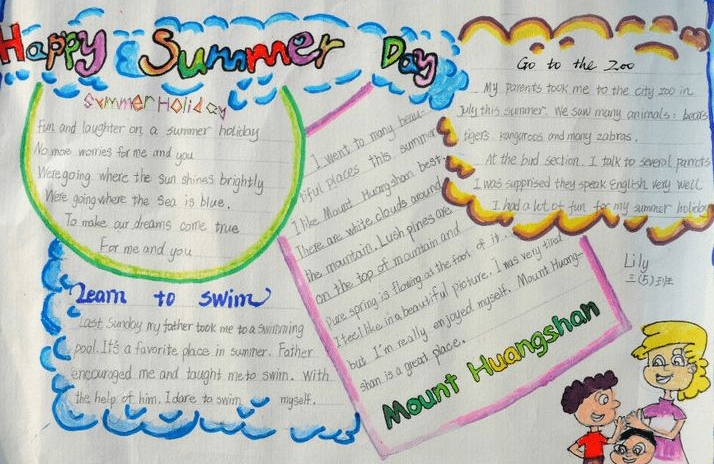 Happy Summer Day
Summer Holiday
Fun and laughter on a summer holiday
No more worries for me and you
We're going where the sun shines brightly
We're going where the sea is blue.
To make our dreams come true
For me and you
Learn to swim
Last Sunday my father took me to a swimming
pool. It's a favorite place in summer. Father
encouraged me and taught me to swim. With
the help of him. I dare to swim myself.
I went to many beau-
tiful places this summer
I like Mount Huangshan best.
There are white clouds around
the mountain. Lush pines are
on the top of mountain and
Pure spring is flowing at the foot of it...
I feel like in a beautiful picture. I was very tired
but I'm really enjoyed myself. Mount Huang-
shan is a great place.
Mount Huangshan
Go to the Zoo
My parents took me to the city zoo in
July this summer. We saw many animals: bears
tigers. kangaroos and many zabras.
At the bird section. I talk to several parrots
I was supprised they speak English very well
I had a lot of fun for my summer holiday
Lily
三(5)班